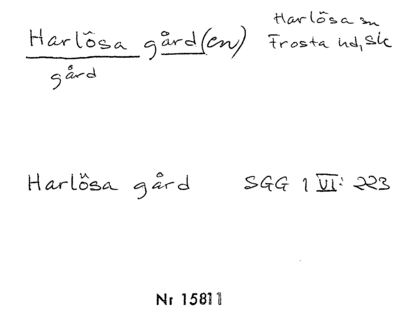 Harlösa gård(en)
gård
Harlösa sn
Frosta hd, Sk
Harlösa gård SGG 1 VI: 223
Nr 15811